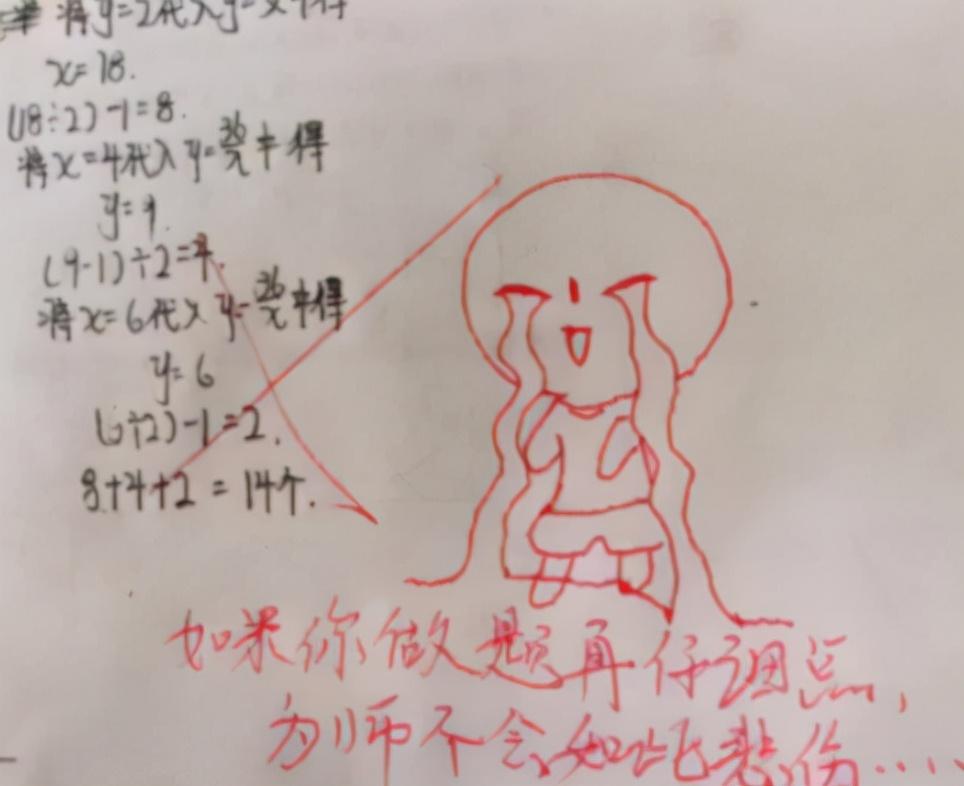 将y=2代入y=x中得
x=18.
(18÷2)-1=8.
将x=4代入y=36/x中得
y=9.
(9-1)÷2=4.
将x=6代入y=36/x中得
y=6
(6÷2)-1=2.
8+4+2=14个.
如果你做题再仔细点,
为师不会如此悲伤.....